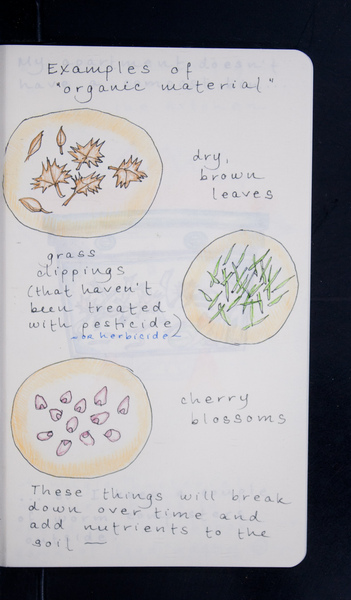 Examples of
"organic material"
dry,
brown
leaves
grass
clippings
(that haven't
been treated
with pesticide)
or herbicide
cherry
blossoms
These things will break
down over time and
add nutrients to the
soil —